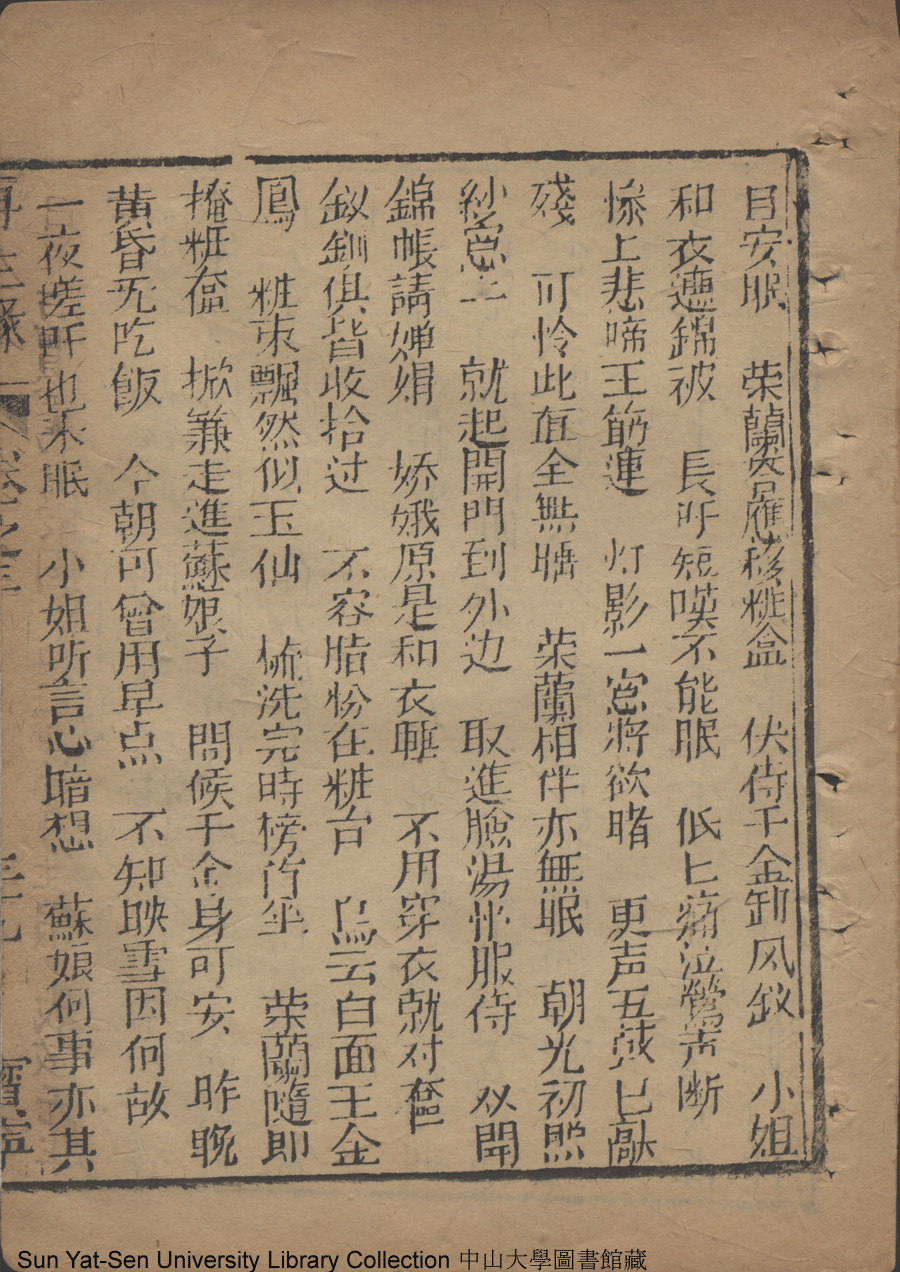 目安眠　荣蘭答應移粧盒　伏侍千金卸风釵　小姐
和衣遶錦被　長吁短嘆不能眠　低匕痛泣鶯声断
悲啼王筯連　灯影一窓將欲暗　更声五㦸已敲
殘　可怜此直全無睡　荣蘭相伴亦無眠　朝光初照
紗窓上　就起開門到外边　取進臉湯忙服侍　双開
錦帳請婵娟　娇娥原是和衣睡　不用穿衣就对奩
釵釧俱皆收拾过　不容脂粉在粧台　烏云白面王金
鳳　粧束飄然似玉仙　梳洗完時榜竹坐　荣蘭隨即
掩粧奩　掀簾走進蘇娘子　問候千金身可安　昨晚
黄昏无吃飯　今朝可曾用早点　不知映雪因何故
一夜嗟吁也未眠　小姐听言心暗想　蘇娘何事亦其
再生緣　卷之三
Sun Yat-Sen University Library Collection 中山大學圖書館藏